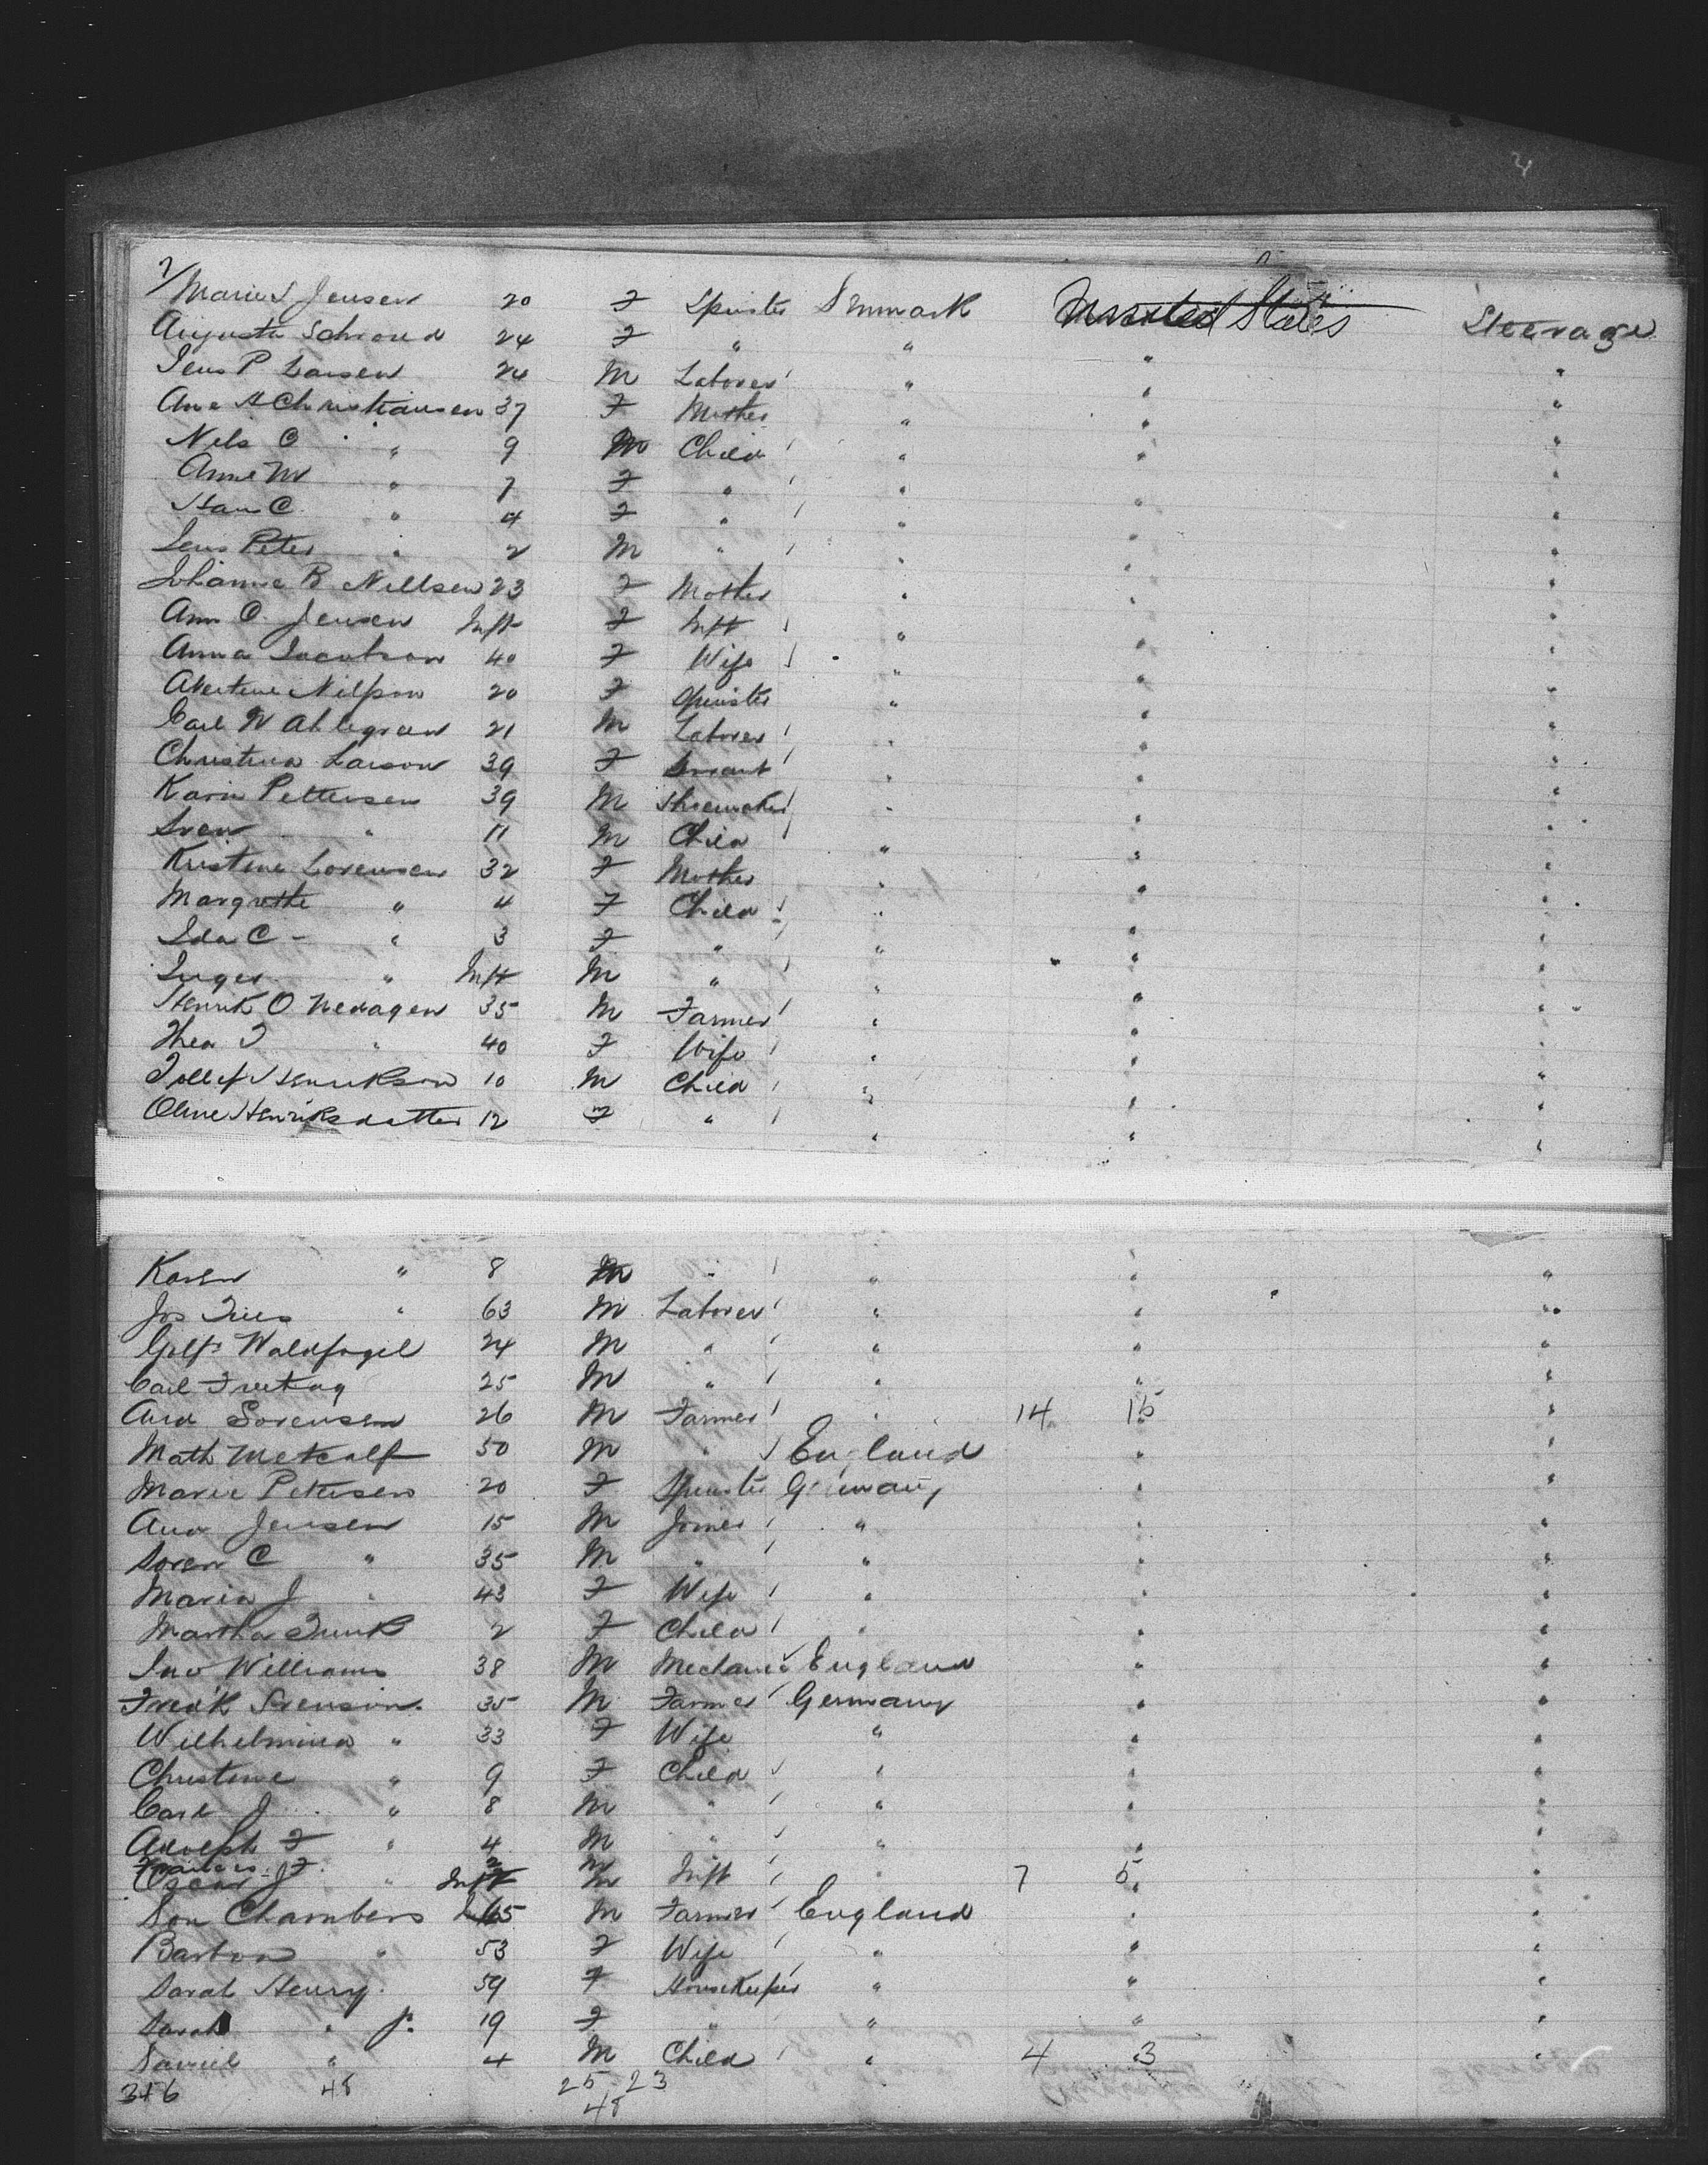 Marie S Jensen 20 F Spinster Denmark United States Steerage
Augusta Schroed 24 F " " " "
Jens P Larsen 24 M Laborer " " "
Ane A Christiansen 37 F Mother " " "
Nels C " 9 M Child " " "
Anne M " 7 F " " " "
Hans C " 4 F " " " "
Jens Peter " 2 M " " " "
Johanne B Nellsen 23 F Mother " " "
Ann C Jensen Inft F Inft " " "
Anna Jacobson 40 F Wife " " "
Nilsson 20 F Spinster " " "
Carl W Ahlegren 21 M Laborer " " "
Christina Larson 39 F Servant " " "
Karin Pettersen 39 M Shoemaker " " "
Sven " 11 M Child " " "
Kristine Sorensen 32 F Mother " " "
Margrethe " 4 F Child " " "
Ida C - " 3 F " " " "
Inger " Inft M " " " "
Henrik O Nedagen 35 M Farmer " " "
Thea T " 40 F Wife " " "
Tollef Henrikson 10 M Child " " "
Oline Henriksdatter 12 F " " " "
Karen " 8 M " " " "
Jos " 63 M Laborer " " "
Waldfogil 24 M " " " "
Carl Freitag 25 M " " " "
And Sorensen 26 M Farmer " 14 15 "
Math Metcalf 50 M " England " "
Marie Petersen 20 F Spinster Germany " "
And Jensen 15 M Joiner " " "
Soren C " 35 M " " " "
Maria J " 43 F Wife " " "
Martha 2 F Child " " "
Jno Williams 38 M Mechanic England " "
Fredk Svenson 35 M Farmer Germany " "
Wilhelmina " 33 F Wife " " "
Christine " 9 F Child " " "
Carl J " 8 M " " " "
Adolph F " 4 M " " " "
Frances F. 2 M
Oscar J " Inft M Inft " 7 5 "
Chambers 65 M Farmer England " "
Barbra " 53 F Wife " " "
Sarah Henry 59 F Housekeeper " " "
Sarah " Jr. 19 F " " " "
Samuel " 4 M Child " 4 3 "
346 48 25 23
48